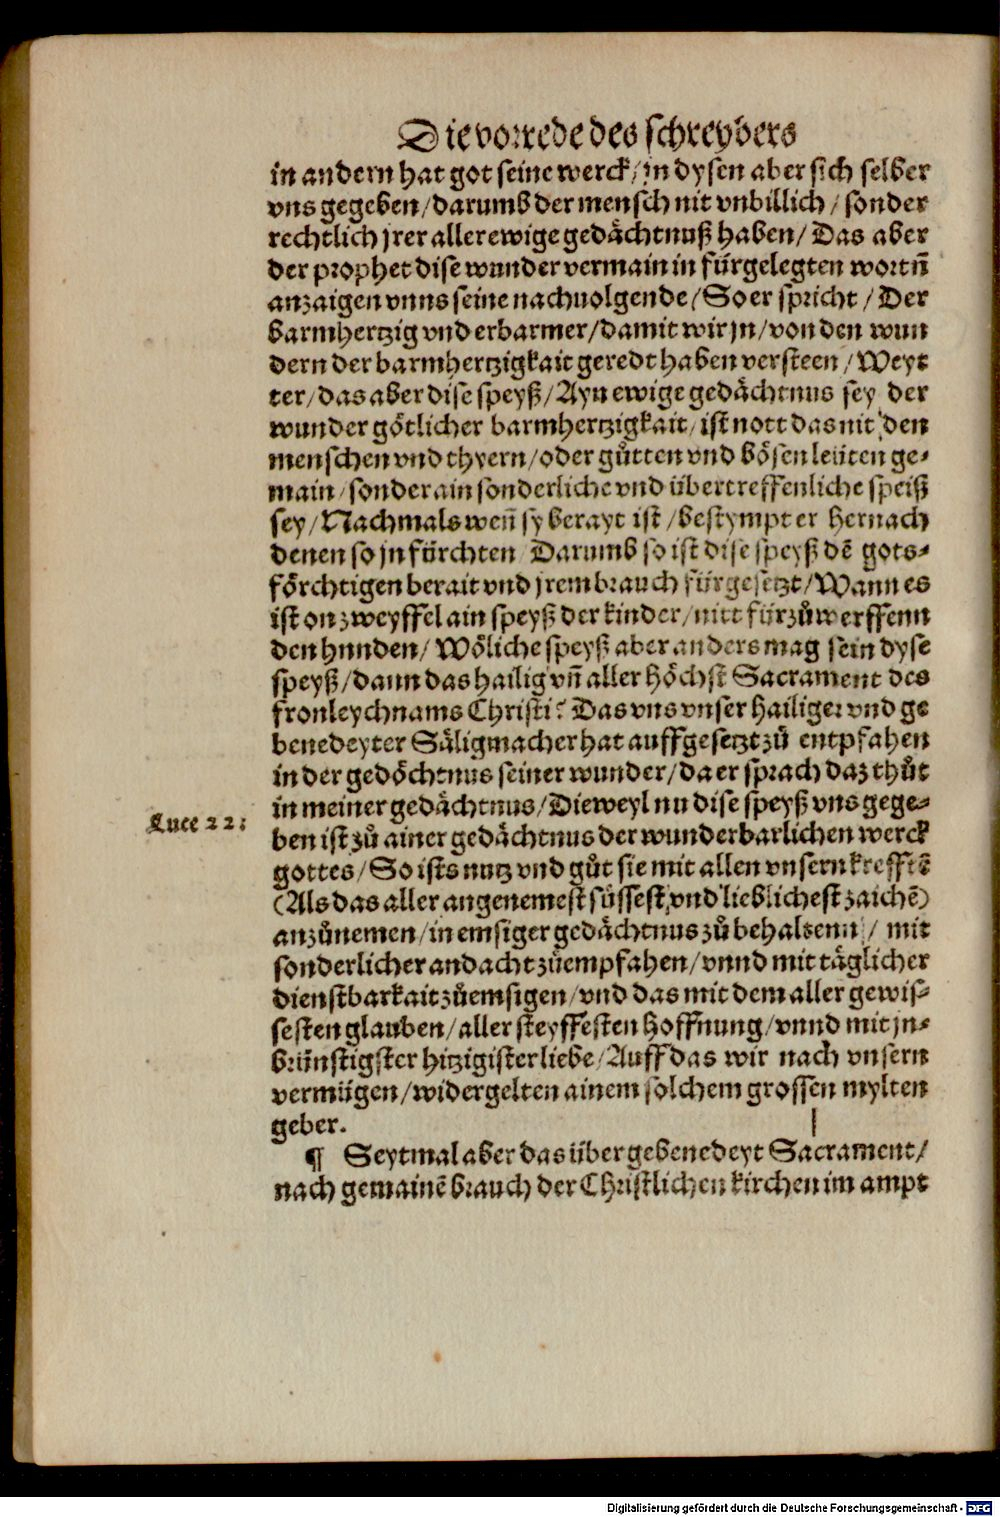 Die vorrede des schreybers
in andern hat got seine werck/ jn dysen aber sich selber
vns gegeben/ darumb der mensch nit vnbillich/ sonder
rechtlich jrer aller ewige gedächtnuß haben/ Das aber
der prophet dise wunder vermain in fürgelegten wortn̄
anzaigen vnns seine nachuolgende/ So er spricht/ Der
barmhertzig vnd erbarmer/ damit wir jn/ von den wun
dern der barmhertzigkait geredt haben versteen/ Weyt
ter/ das aber dise speyß/ Ayn ewige gedächtnus sey der
wunder götlicher barmhertzigkait/ ist nott das nit den
menschen vnd thyern/ oder gůtten vnd bösen leüten ge-
main/ sonder ain sonderliche vnd übertreffenliche speiß
sey/ Nachmals wen̄ sy berayt ist/ bestympt er hernach
denen so jn fürchten/ Darumb so ist dise speyß dē gots-
förchtigen berait vnd jrem brauch fürgesetzt/ Wann es
ist on zweyffel ain speyß der kinder/ nitt fürzůwerffenn
den hunden/ Wöliche speyß aber anders mag sein dyse
speyß/ dann das hailig vn̄ aller höchst Sacrament des
fronleychnams Christi? Das vns vnser hailiger vnd ge
benedeyter Säligmacher hat auffgesetzt zů entpfahen
in der gedöchtnus seiner wunder/ da er sprach daz thůt
in meiner gedächtnus/ Dieweyl nu dise speyß vns gege-
Luce 22:
ben ist zů ainer gedächtnus der wunderbarlichen werck
gottes/ So ists nutz vnd gůt sie mit allen vnsern krefftē
(Als das aller angenemest süssest vnd lieblichest zaichē)
anzůnemen/ in emsiger gedächtnus zů behaltenn/ mit
sonderlicher andacht zů empfahen/ vnnd mit täglicher
dienstbarkait zů emsigen/ vnd das mit dem aller gewis-
sesten glauben/ aller steyffesten hoffnung/ vnnd mit jn-
brünstigster hitzigister liebe/ Auff das wir nach vnsern
vermügen/ widergelten ainem solchem grossen mylten
geber.
¶ Seytmal aber das über gebenedeyt Sacrament/
nach gemainē brauch der Christlichen kirchen im ampt
Digitalisierung gefördert durch die Deutsche Forschungsgemeinschaft - DFG